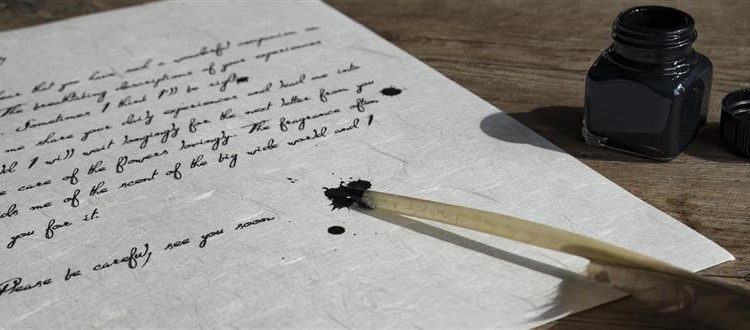 share that you have and a wonderful companion
The breathtaking descriptions of your experiences
Sometimes I think I'll be right
me share your daily experiences and lead me into
I will wait longingly for the next letter from you
care of the flowers lovingly. The fragrance often
me of the scent of the big wide world and I
you for it.
Please be careful, see you soon